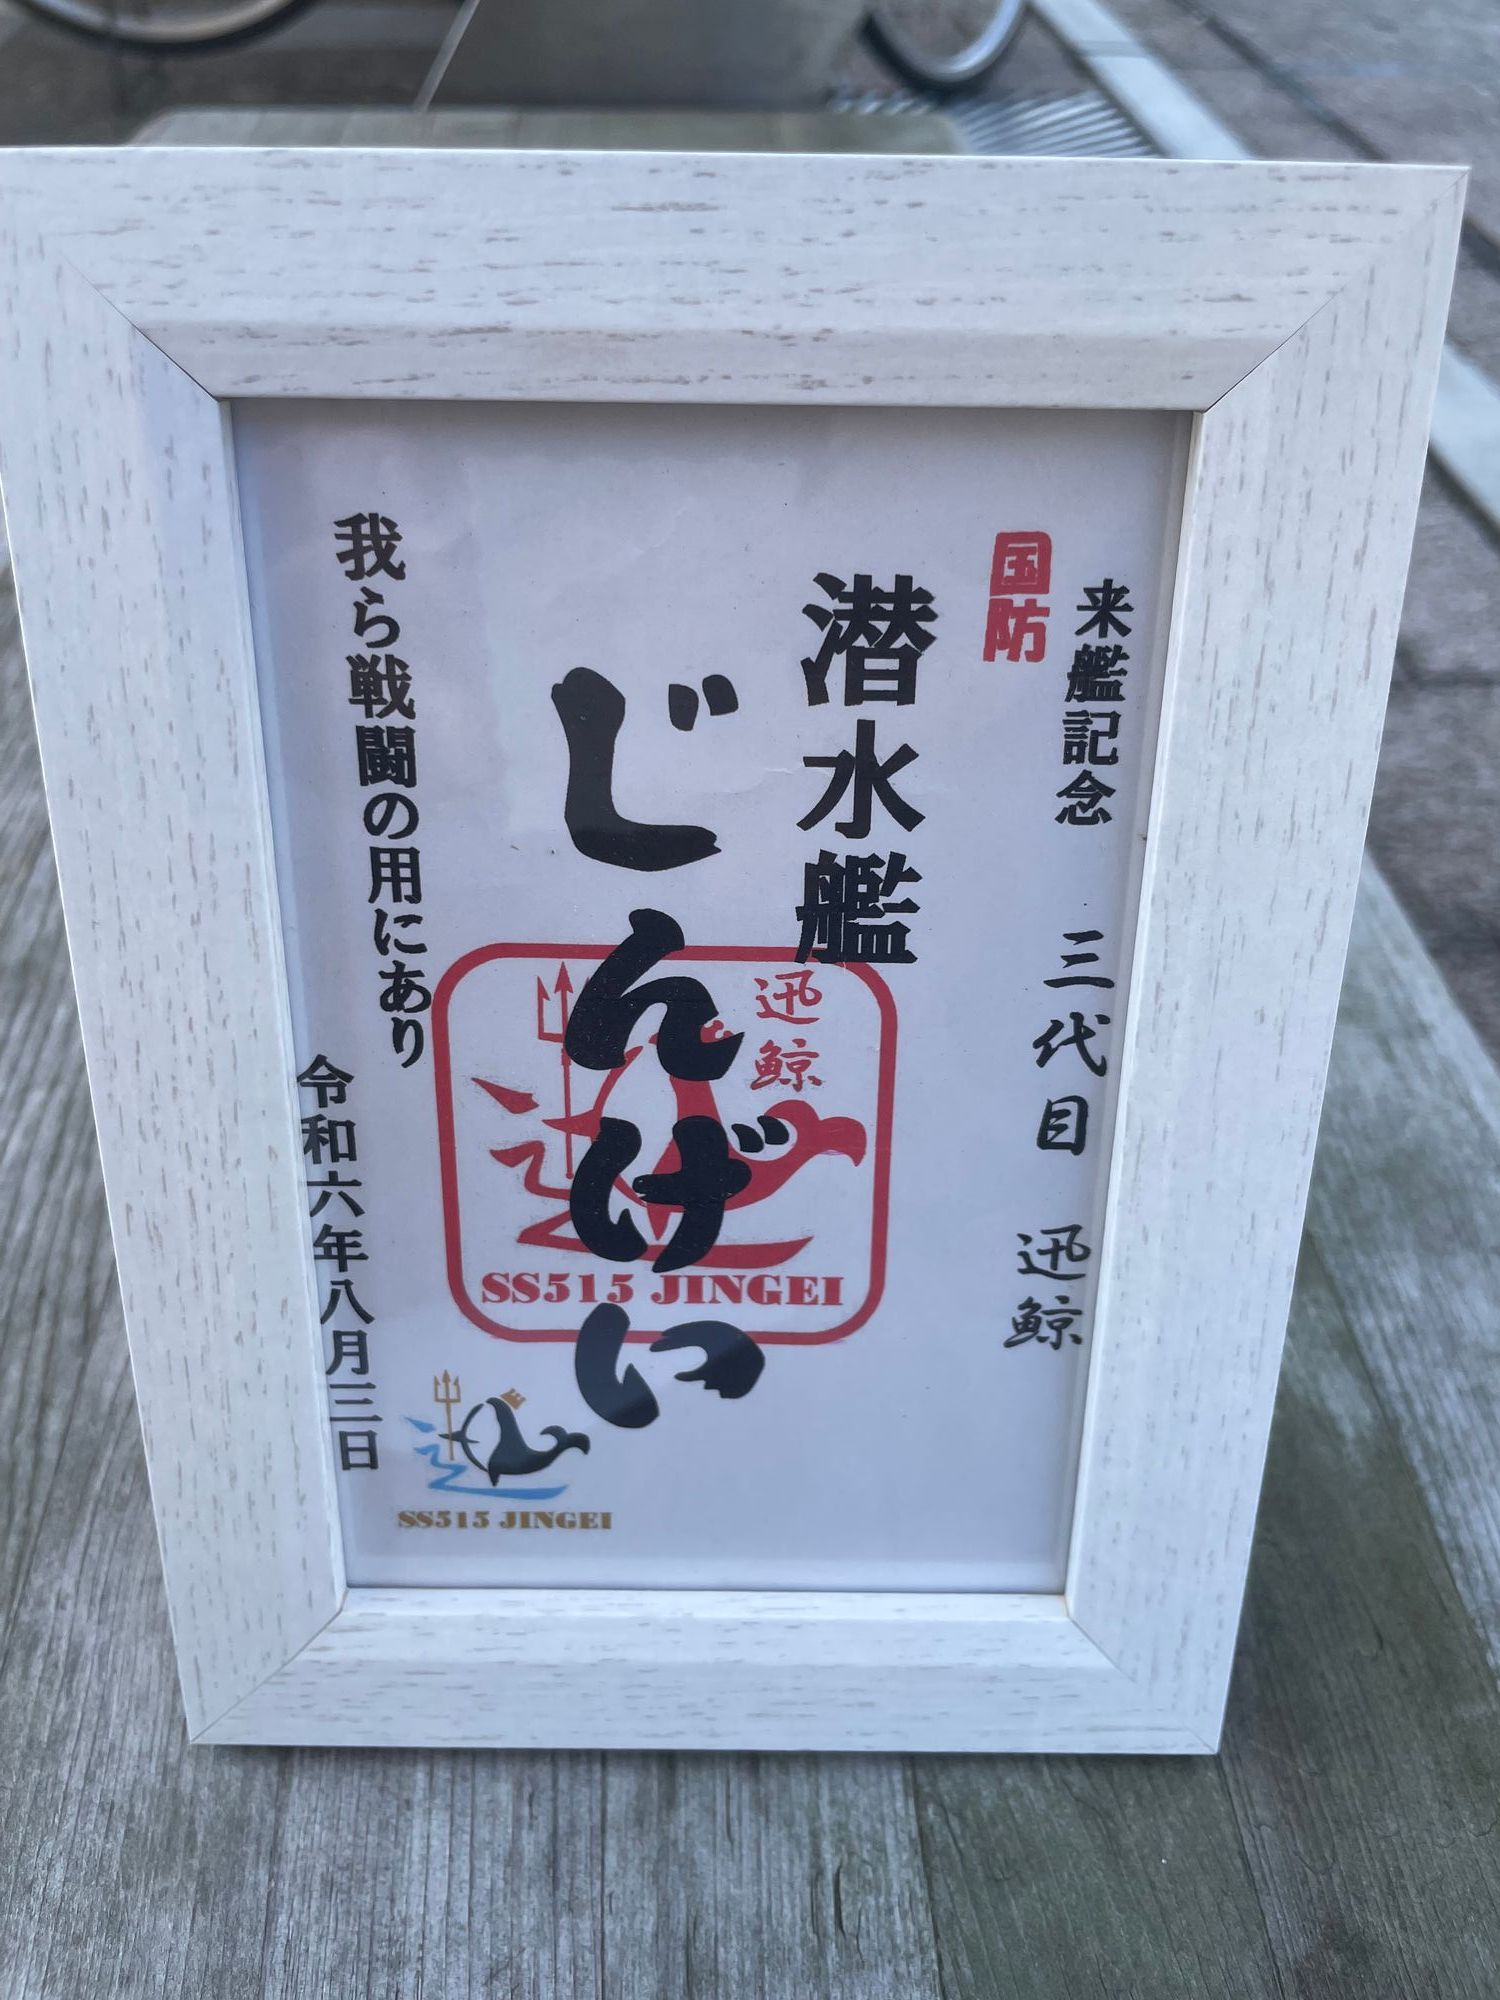 来艦記念　三代目　迅鯨
国防
潜水艦
じんげい
迅鯨
SS515 JINGEI
我ら戦闘の用にあり
令和六年八月三日
SS515 JINGEI